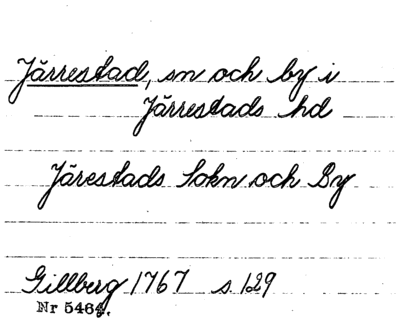 Järrestad, sn och by i
Järrestads hd
Järestads Sokn och By
Gillberg 1767 s 129
Nr 5464.